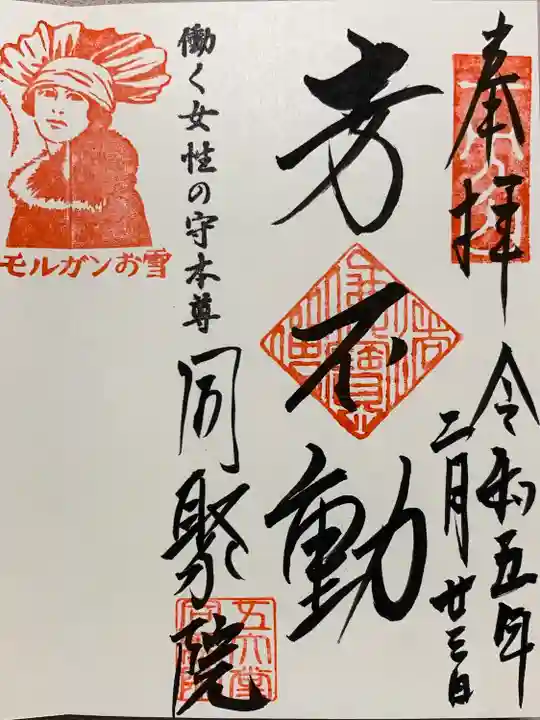 奉拝
令和五年
二月廿三日
芳不動
働く女性の守本尊
同聚院
モルガンお雪